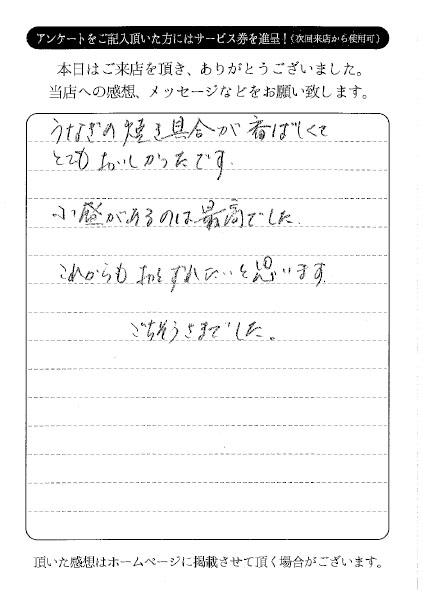 アンケートをご記入頂いた方にはサービス券を進呈！（次回来店から使用可）
本日はご来店を頂き、ありがとうございました。
当店への感想、メッセージなどをお願い致します。
うなぎの焼き具合が香ばしくて
とてもおいしかったです.
小盛があるのは最高でした.
これからもおとずれたいと思います.
ごちそうさまでした。
頂いた感想はホームページに掲載させて頂く場合がございます。